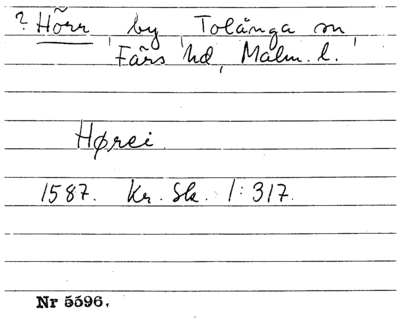 ? Hörr, by, Tolånga sn,
Färs hd, Malm. l.
Hørei
1587. Kr. Sk. 1:317.
Nr 5596.